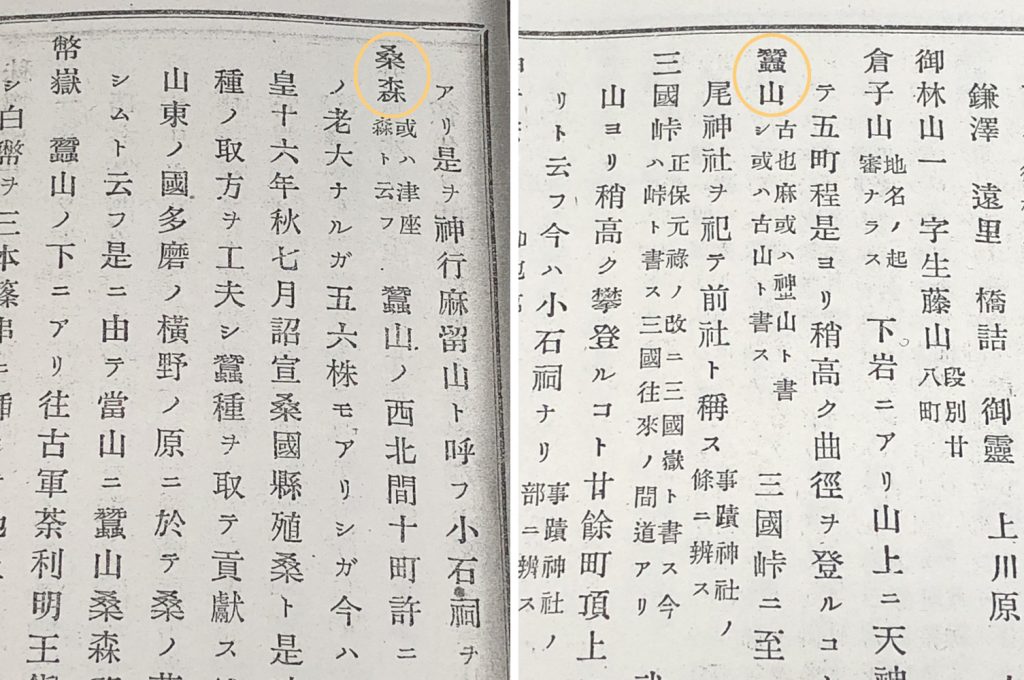 上川原
鎌澤 遠里 橋詰 御靈
御林山一 字生藤山 段別廿
八町
倉子山 地名ノ起
審ナラス 下岩ニアリ山上ニ天神
テ五町程是ヨリ稍高ク曲徑ヲ登ルコ
蠶山 古也麻或ハ山ト書
シ或ハ古山ト書ス 三國峠ニ至
尾神社ヲ祀テ前社ト稱ス 事蹟神社ノ
條ニ辨ス
三國峠 正保元祿ノ改ニ三國嶽ト書ス今
ハ峠ト書ス三國往來ノ間道アリ
山ヨリ稍高ク攀登ルコト廿餘町頂上
リト云フ今ハ小石祠ナリ 事蹟神社ノ
部ニ辨ス
アリ是ヲ神行麻留山ト呼フ小石祠ヲ
桑森 或ハ津座
森ト云フ 蠶山ノ西北間十町許ニ
ノ老大ナルガ五六株モアリシガ今ハ
皇十六年秋七月詔宣桑國縣殖桑ト是
種ノ取方ヲ工夫シ蠶種ヲ取テ貢獻ス
山東ノ國多磨ノ橫野ノ原ニ於テ桑ノ
シムト云フ是ニ由テ當山ニ蠶山桑森
幣嶽 蠶山ノ下ニアリ往古軍荼利明王
シ白幣ヲ三本篠串ニ